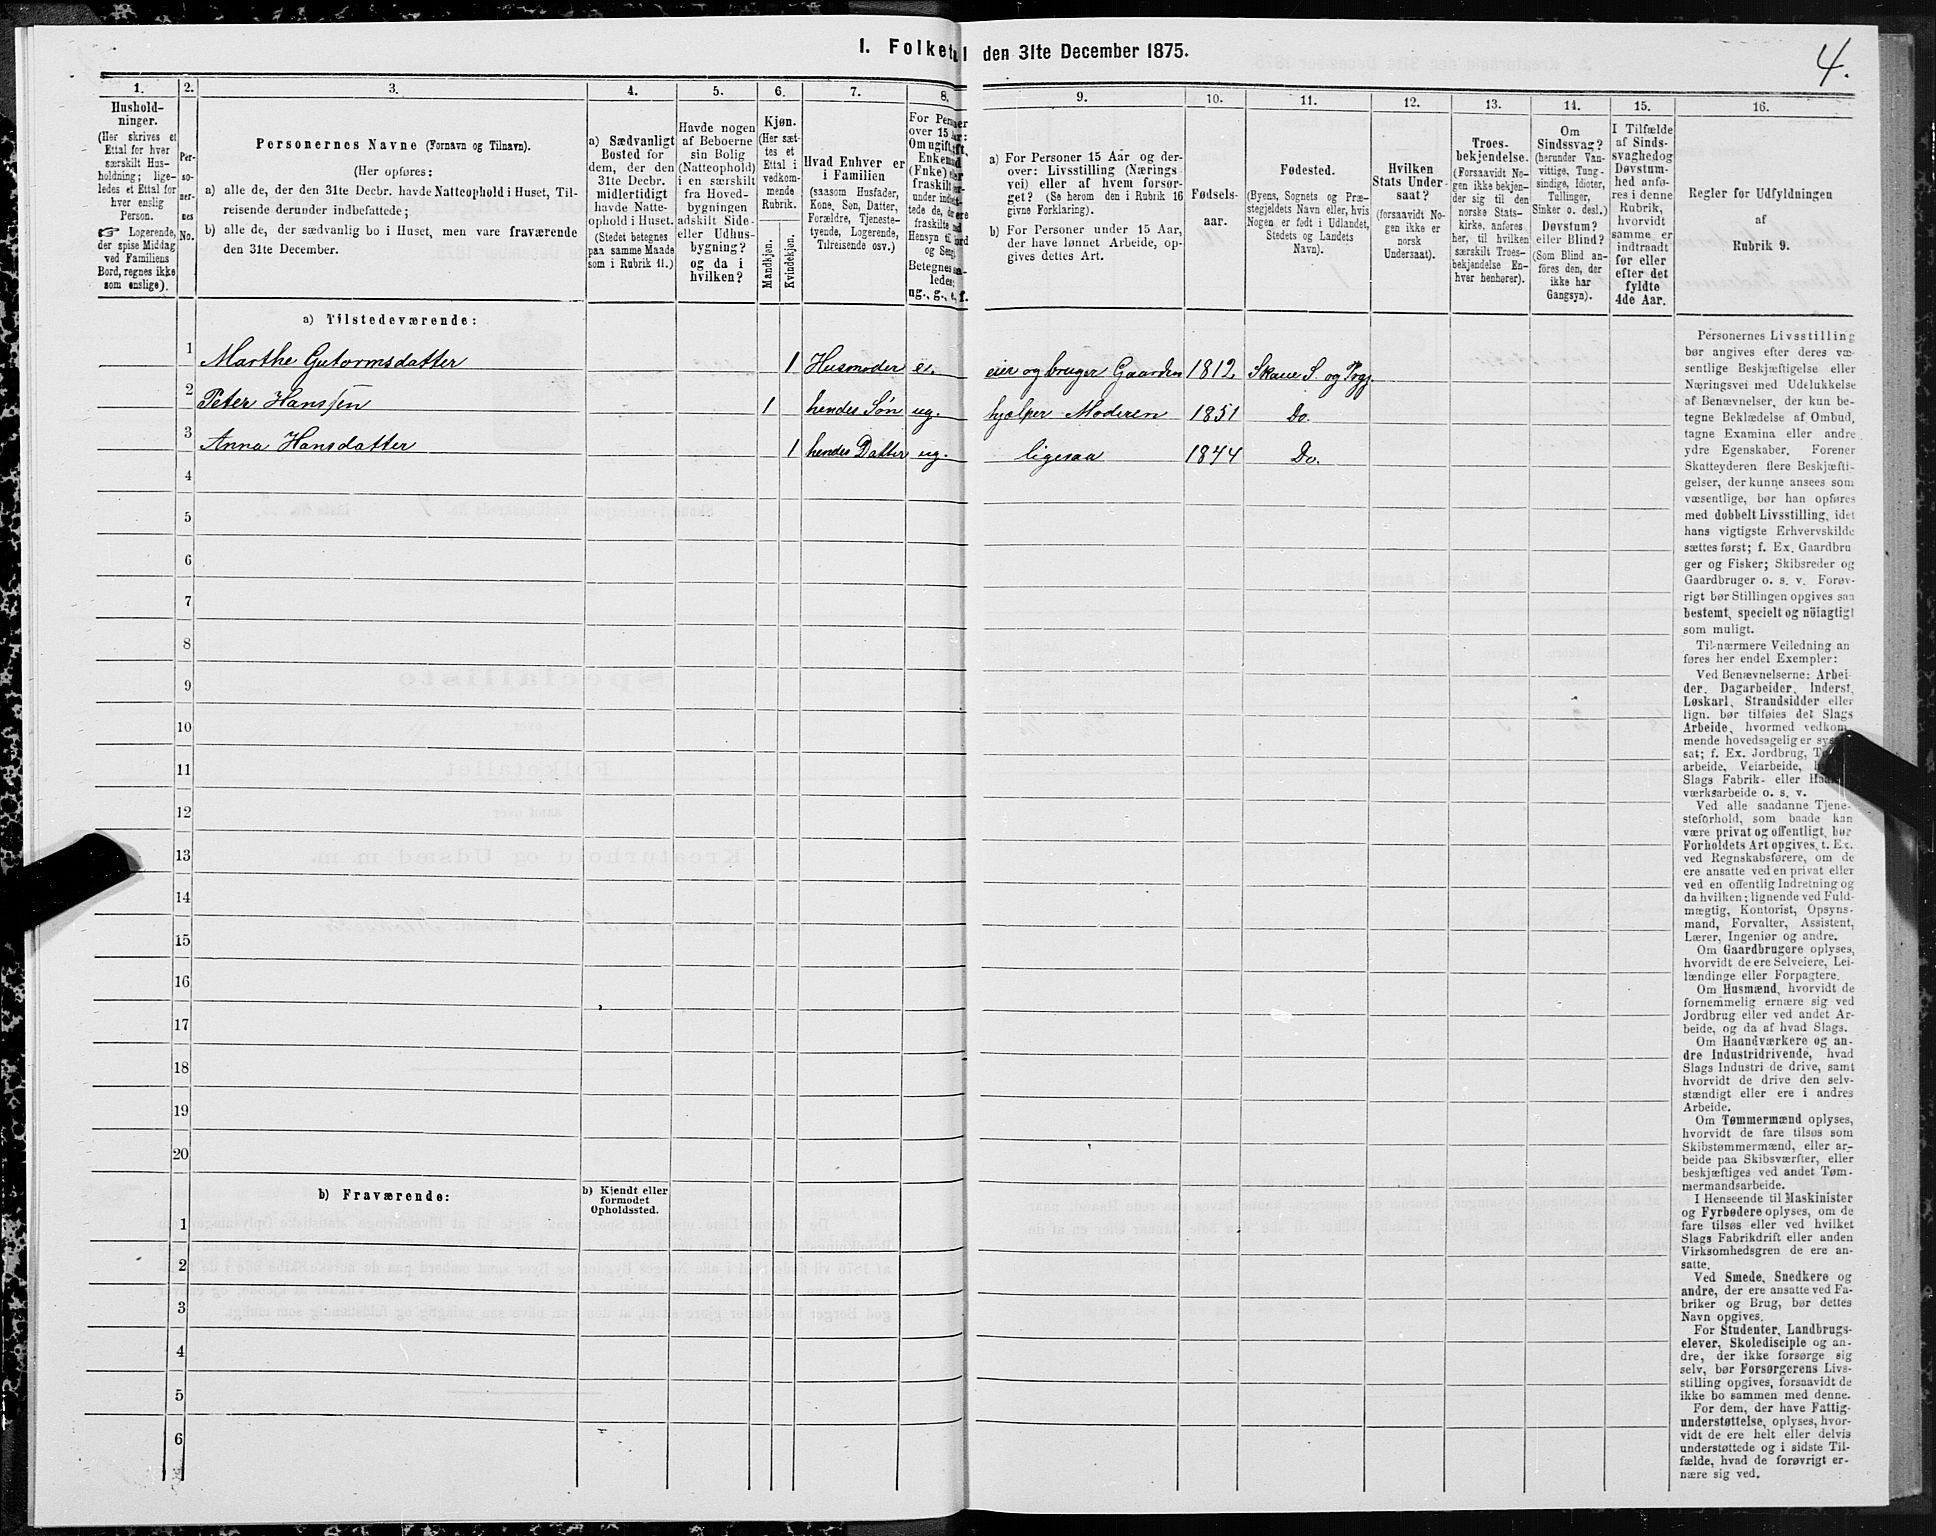 I. Folketal den 31te December 1875.
4.
1.
2.
3.
4.
5.
6.
7.
8.
9.
10.
11.
12.
13.
14.
15.
16.
Hushold-
ninger.
(Her skrives et
Ettal for hver
særskilt Hus-
holdning; lige-
ledes et Ettal for
hver enslig
Person.
☞ Logerende,
der spise Middag
ved Familiens
Bord, regnes ikke
som enslige).
Per-
so-
ner-
nes
No.
Personernes Navne (Fornavn og Tilnavn).
(Her opføres:
a) alle de, der den 31te Decbr. havde Natteophold i Huset, Til-
reisende derunder indbefattede;
b) alle de, der sædvanlig bo i Huset, men vare fraværende
den 31te December.
a) Sædvanligt
Bosted for
dem, der den
31te Decbr.
midlertidigt
havde Natte-
ophold i Huset.
(Stedet betegnes
paa samme Maade
som i Rubrik 11.)
Havde nogen
af Beboerne
sin Bolig
(Natteophold)
i en særskilt
fra Hoved-
bygningen
adskilt Side-
eller Udhus-
bygning?
og da i
hvilken?
Kjøn.
(Her sæt-
tes et
Ettal i
vedkom-
mende
Rubrik.
Mandkjøn.
Kvindekjøn.
Hvad Enhver er
i Familien
(saasom Husfader,
Kone, Søn, Datter,
Forældre, Tjeneste-
tyende, Logerende,
Tilreisende osv.)
For Personer
over 15 Aar:
Om ugift, gift,
Enkemand
(Enke) eller
fraskilt
Betegnes saa-
ledes:
ug., g., e., f.
a) For Personer 15 Aar og der-
over: Livsstilling (Nærings
vei) eller af hvem forsør-
get? (Se herom den i Rubrik 16
givne Forklaring).
b) For Personer under 15 Aar,
der have lønnet Arbeide, op-
gives dettes Art.
Fødsels-
aar.
Fødested.
(Byens, Sognets og Præ-
stegjeldets Navn eller, hvis
Nogen er født i Udlandet,
Stedets og Landets
Navn).
Hvilken
Stats Under-
saat?
(forsaavidt No-
gen ikke er
norsk
Undersaat).
Troes-
bekjendelse.
(Forsaavidt No-
gen ikke bekjen-
der sig til den
norske Stats-
kirke, anføres
her, til hvilken
særskilt Troes-
bekjendelse En-
hver henhører).
Om
Sindssvag?
(herunder Van-
vittige, Tung-
sindige, Idioter,
Tullinger,
Sinker o. desl.)
Døvstum?
eller Blind?
(Som Blind an-
føres den, der
ikke har
Gangsyn).
I Tilfælde
af Sinds-
svaghed og
Døvstum-
hed anfø-
res i denne
Rubrik,
hvorvidt
samme er
indtraadt
før eller
efter det
fyldte
4de Aar.
Regler for Udfyldningen
af
Rubrik 9.
a) Tilstedeværende:
1 Marthe Gutormsdatter 1 Husmoder e. eier og bruger Gaarden 1812 Skaue S. og Prgj.
2 Peter Hanssen 1 hendes Søn ug. hjælper Moderen 1851 Do.
3 Anna Hansdatter 1 hendes Datter ug. ligesaa 1844 Do.
4
5
6
7
8
9
10
11
12
13
14
15
16
17
18
19
20
b) Fraværende:
b) Kjendt eller
formodet
Opholdssted.
1
2
3
4
5
6
Personernes Livsstilling
bør angives efter deres væ-
sentlige Beskjæftigelse eller
Næringsvei med Udelukkelse
af Benævnelser, der kun be-
tegne Beklædelse af Ombud,
tagne Examina eller andre
ydre Egenskaber. Forener
Skatteyderen flere Beskjæfti-
gelser, der kunne ansees som
væsentlige, bør han opføres
med dobbelt Livsstilling, idet
hans vigtigste Erhvervskilde
sættes først; f. Ex. Gaardbru
ger og Fisker; Skibsreder og
Gaardbruger o. s. v. Forøv-
rigt bør Stillingen opgives saa
bestemt, specielt og nöiagtigt
som muligt.
Til nærmere Veiledning an
føres her endel Exempler:
Ved Benævnelserne: Arbei-
der, Dagarbeider, Inderst,
Løskarl, Strandsidder eller
lign. bør tilføies det Slags
Arbeide, hvormed vedkom-
mende hovedsagelig er
sat; f. Ex. Jordbrug,
arbeide, Veiarbeide,
Slags Fabrik- eller
værksarbeide o. s. v.
Ved alle saadanne Tjene-
steforhold, som baade kan
være privat og offentligt, bør
Forholdets Art opgives, t. Ex.
ved Regnskabsførere, om de
ere ansatte ved en privat eller
ved en offentlig Indretning og
da hvilken; lignende ved Fuld-
mægtig, Kontorist, Opsyns-
mand, Forvalter, Assistent,
Lærer, Ingeniør og andre.
Om Gaardbrugere oplyses,
hvorvidt de ere Selveiere, Lei-
lændinge eller Forpagtere.
Om Husmænd, hvorvidt de
fornemmelig ernære sig ved
Jordbrug eller ved andet Ar-
beide, og da af hvad Slags.
Om Haandværkere og an-
dre Industridrivende, hvad
Slags Industri de drive, samt
hvorvidt de drive den selv-
stændigt eller ere i andres
Arbeide.
Om Tømmermænd oplyses,
hvorvidt de fare tilsøs som
Skibstømmermænd, eller ar-
beide paa Skibsværfter, eller
beskjæftiges ved andet Tøm-
mermandsarbeide.
I Henseende til Maskinister
og Fyrbødere oplyses, om de
fare tilsøs eller ved hvilket
Slags Fabrikdrift eller anden
Virksomhedsgren de ere an-
satte.
Ved Smede, Snedkere og
andre, der ere ansatte ved Fa-
briker og Brug, bør dettes
Navn opgives.
For Studenter, Landbrugs-
elever, Skoledisciple og an-
dre, der ikke forsørge sig
selv, bør Forsørgerens Livs-
stilling opgives, forsaavidt de
ikke bo sammen med denne.
For dem, der have Fattig-
understøttelse, oplyses, hvor-
vidt de ere helt eller delvis
understøttede og i sidste Til-
fælde, hvad de forøvrigt er-
nære sig ved.